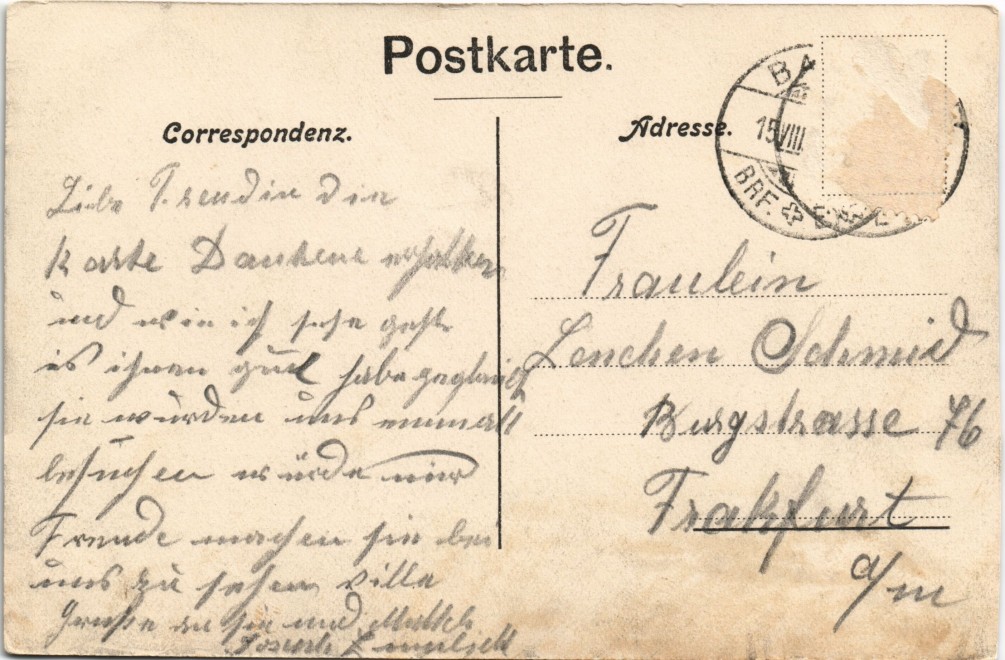 Postkarte.
Correspondenz.
Liebe Freudin din
karte Dankend erhalten
und wie ich sehe geht
es ihnen gut habe geglaubt
sie würden uns einmall
besuchen würde mir
Freude machen sie bei
uns zu sehen ville
Grüße an sie und
Adresse.
BA
15 VIII
BRF.
Fraulein
Lenchen Schmid
Burgstrasse 76
Frakfurt
a/m